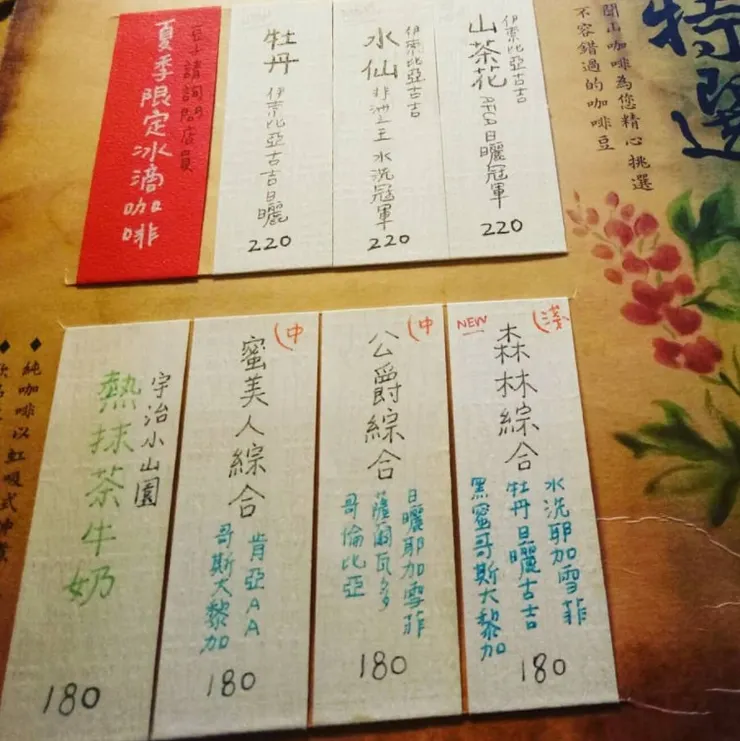 特選
開山咖啡為您精心挑選
不容錯過的咖啡豆
山茶花
伊索比亞古吉
AFCA日曬冠軍
220
水仙
伊索比亞古吉
非洲之王 水洗冠軍
220
牡丹
伊索比亞古吉日曬
220
豆子請詢問店員
夏季限定冰滴咖啡
NEW
(淺
森林綜合
水洗耶加雪菲
牡丹日曬古吉
黑蜜哥斯大黎加
180
(中
公爵綜合
日曬耶加雪菲
薩爾瓦多
哥倫比亞
180
(中
蜜美人綜合
肯亞AA
哥斯大黎加
180
宇治小山園
熱抹茶牛奶
180
◆純咖啡以虹吸式沖煮
◆